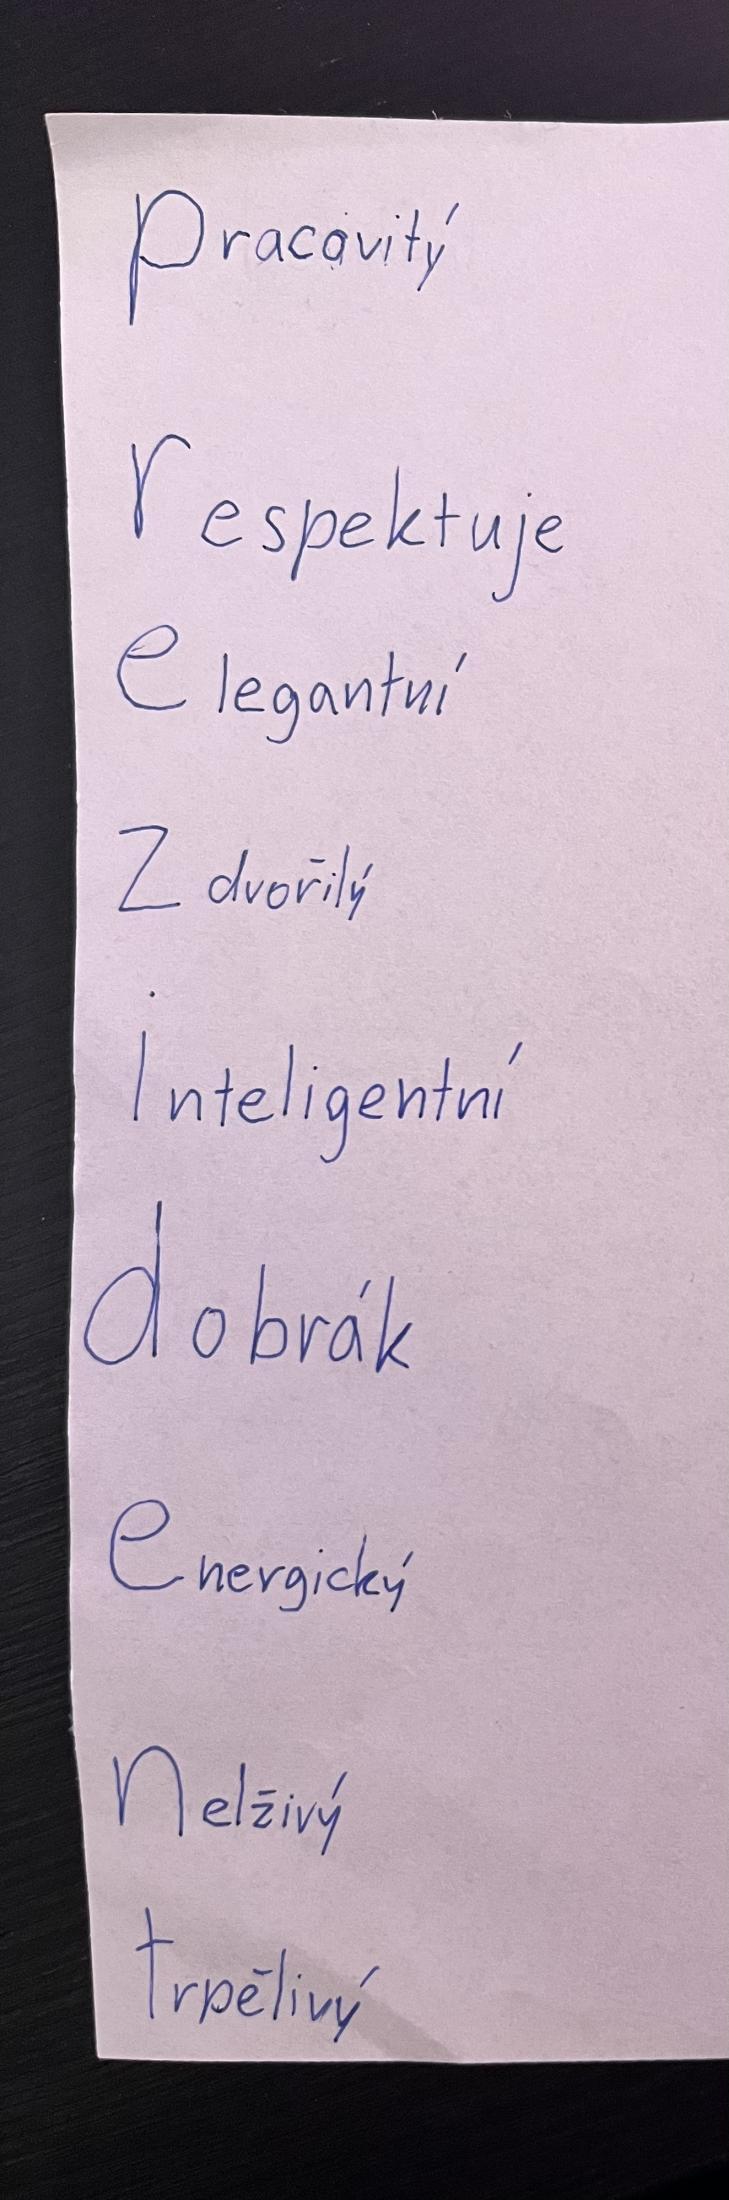 pracovitý
respektuje
elegantní
Zdvořilý
inteligentní
dobrák
energický
nelživý
trpělivý